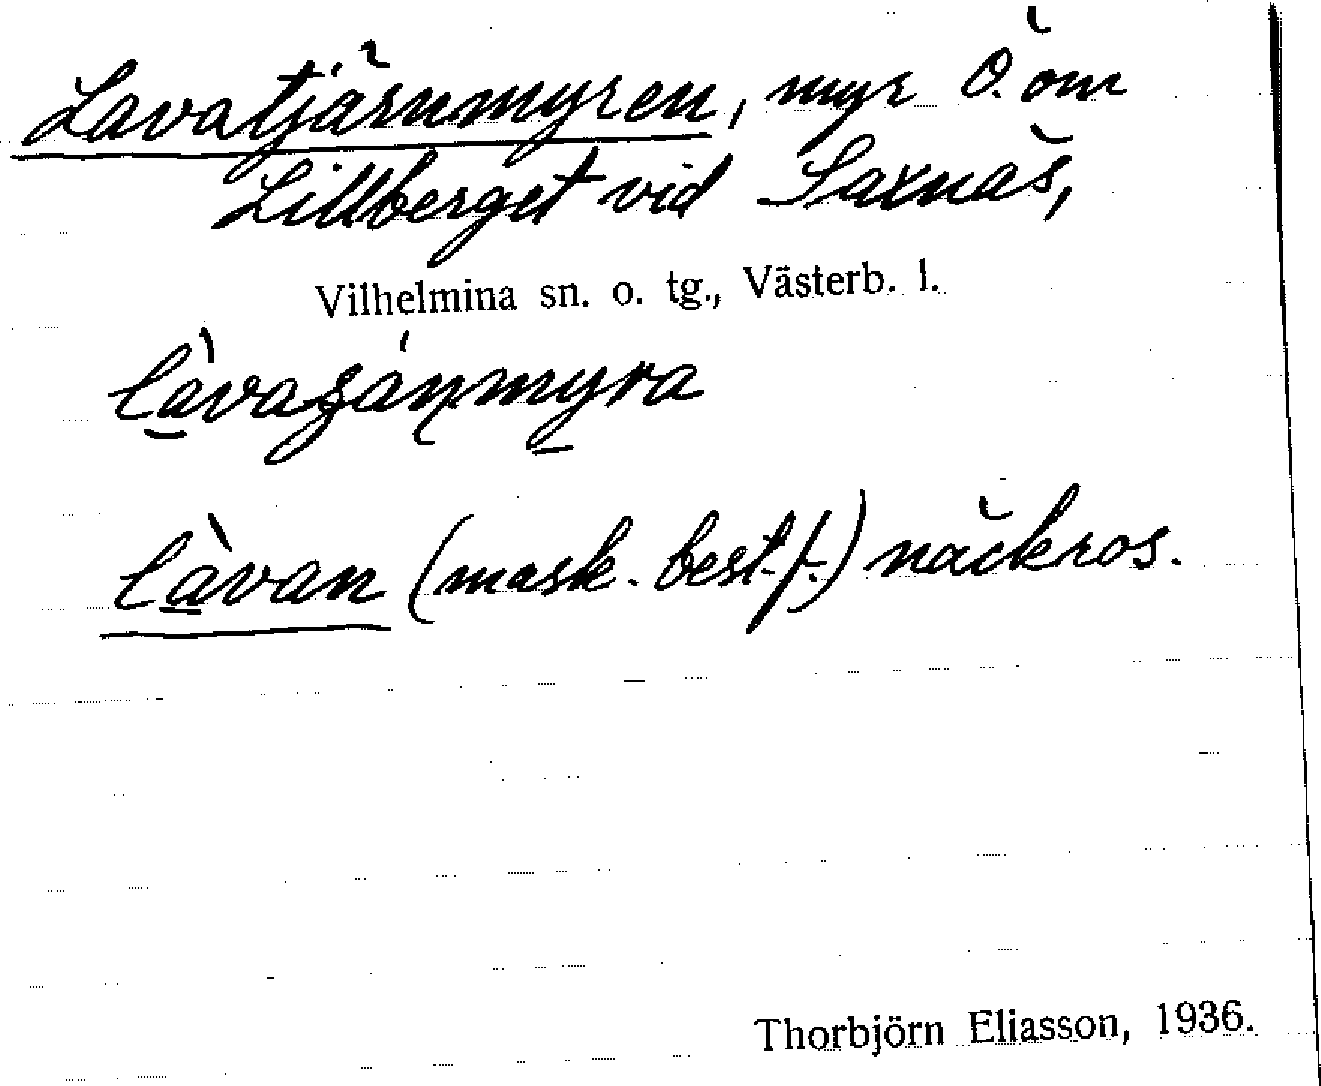 Lavatjärnmyren, myr Ö. om
Lillberget vid Saxnäs,
Vilhelmina sn. o. tg., Västerb. l.
(mask. best. f.) näckros.
Thorbjörn Eliasson, 1936.